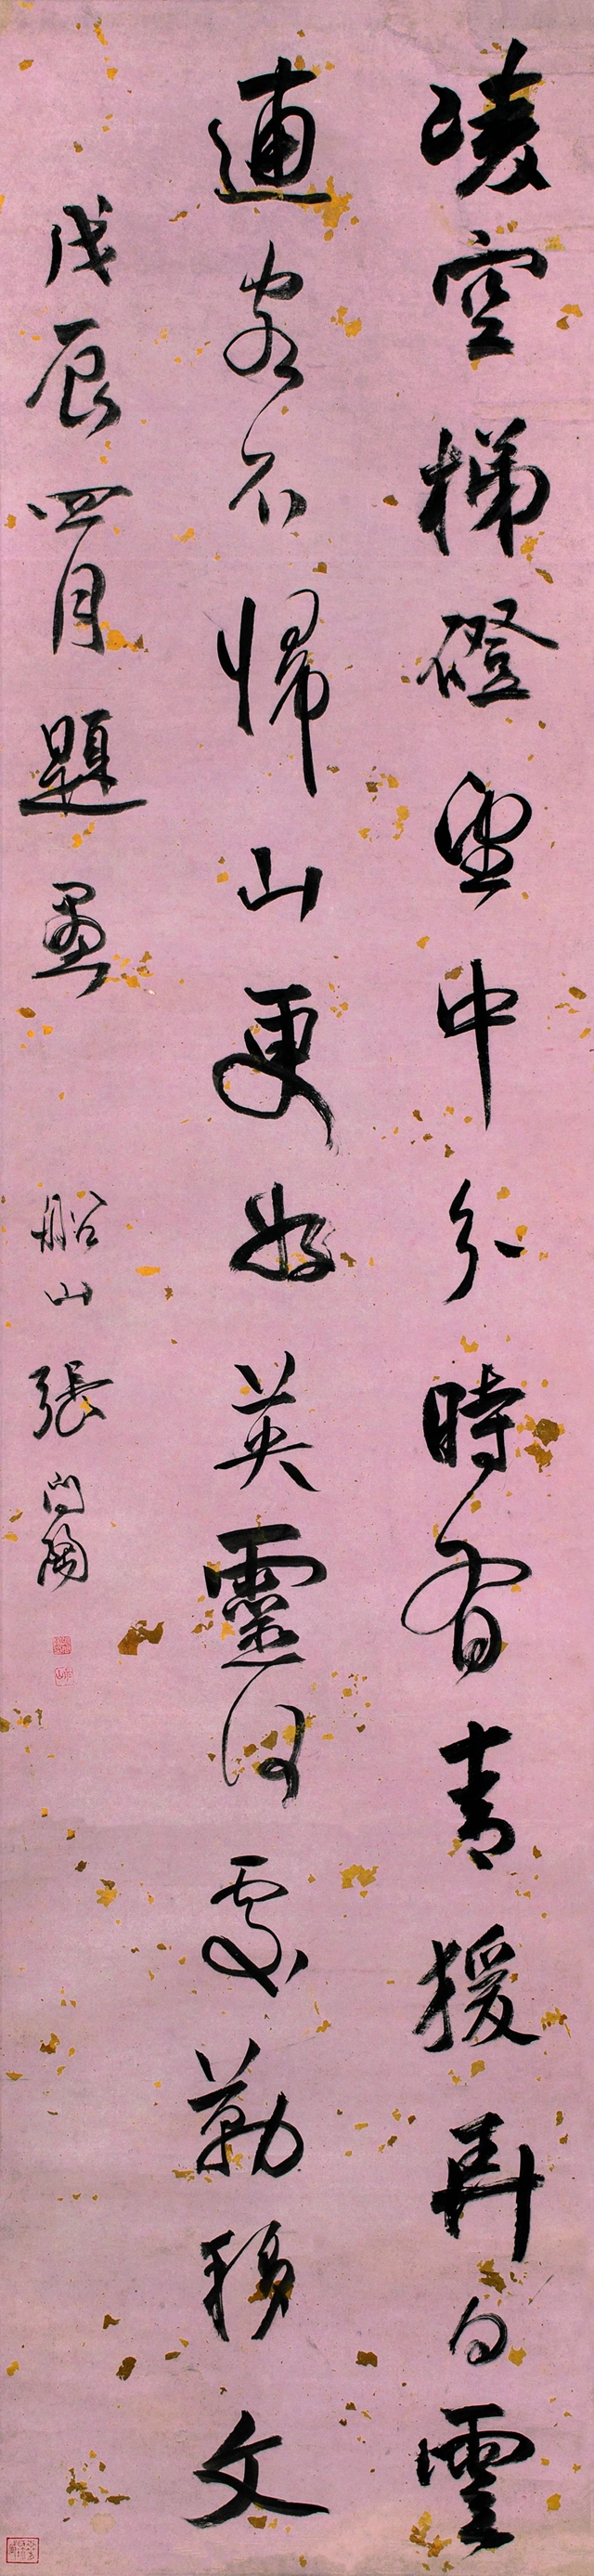 凌空梯磴望中分時有青猨弄白雲
逋客不歸山更好英靈何處勒移文
戊辰四月題畫 船山張問陶